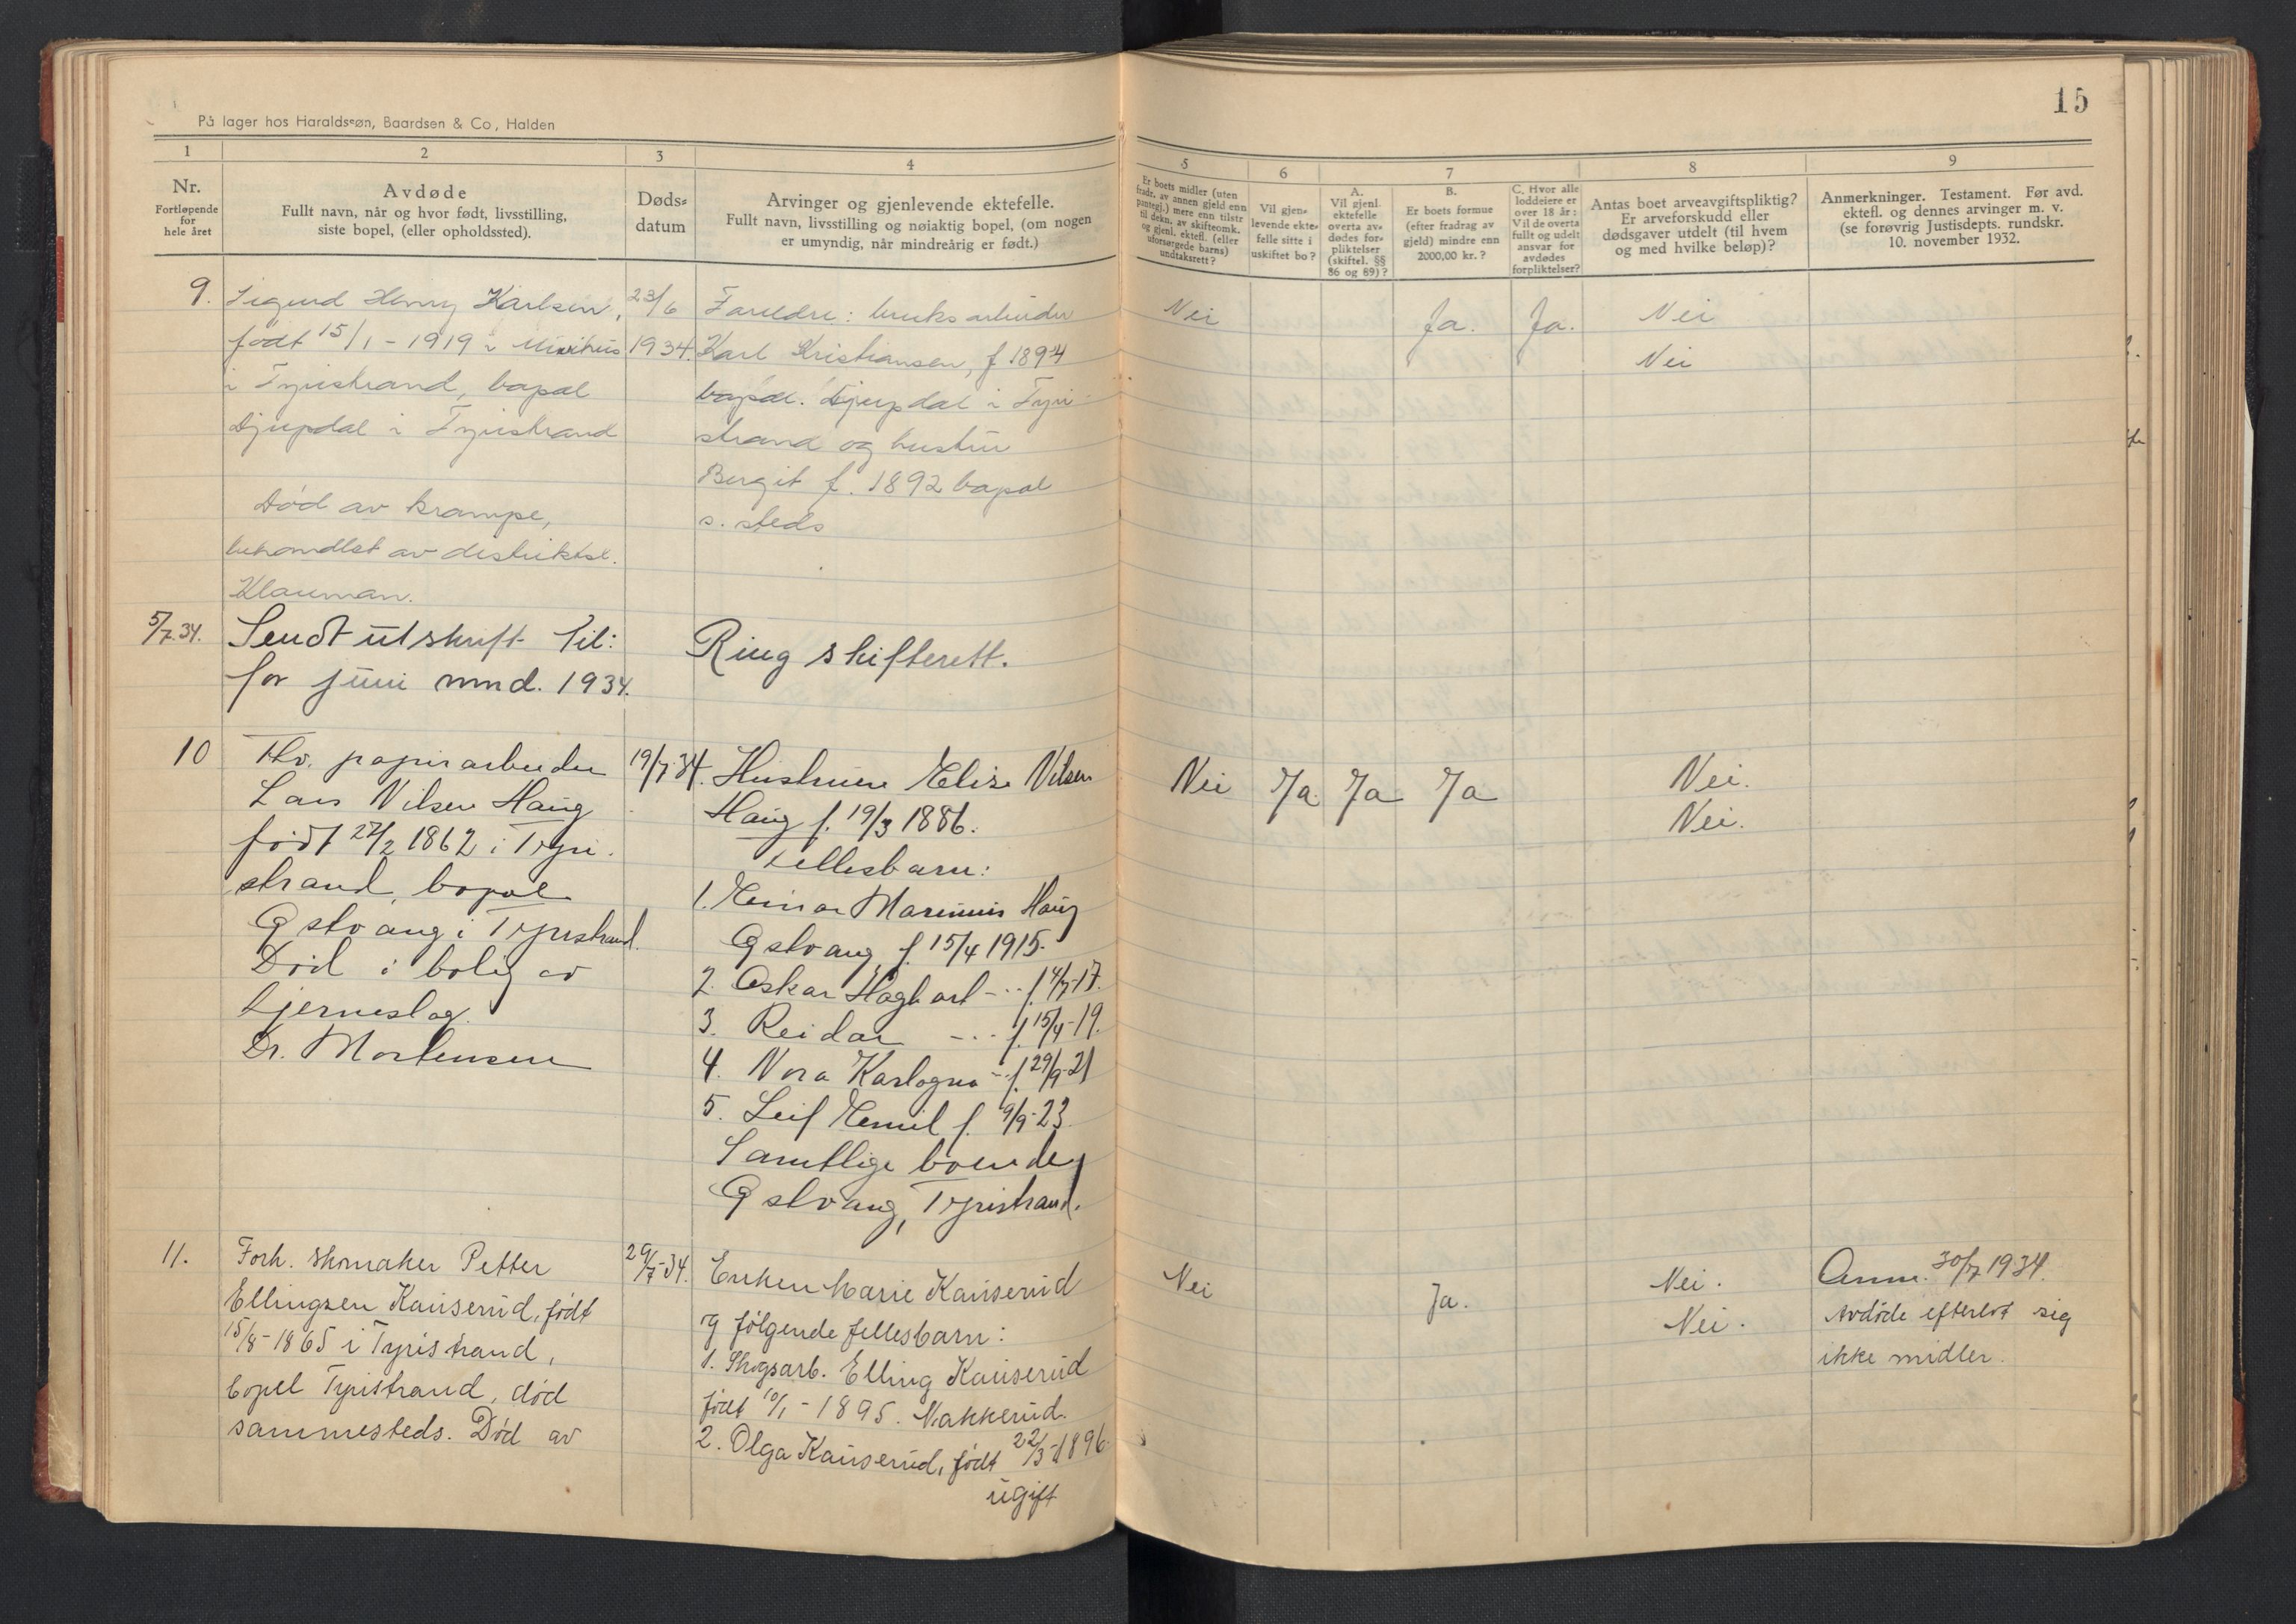 15
På lager hos Haraldssøn, Baardsen & Co, Halden
1
2
3
4
5
6
7
8
9
Nr.
Fortløpende
for
hele året
Avdøde
Fullt navn, når og hvor født, livsstilling,
siste bopel, (eller opholdssted).
Døds-
datum
Arvinger og gjenlevende ektefelle.
Fullt navn, livsstilling og nøiaktig bopel, (om nogen
er umyndig, når mindreårig er født.)
Er boets midler (uten
fradr. av annen gjeld enn
pantegj.) mere enn tilstr.
til dekn. av skifteomk.
og gjenl. ektefl. (eller
uforsørgede barns)
undtaksrett?
Vil gjen-
levende ekte-
felle sitte i
uskiftet bo?
A.
Vil gjenl.
ektefelle
overta av-
dødes for-
pliktelser
(skiftel. §§
86 og 89)?
B.
Er boets formue
(efter fradrag av
gjeld) mindre enn
2000,00 kr.?
C. Hvor alle
loddeiere er
over 18 år:
Vil de overta
fullt og udelt
ansvar for
avdødes
forpliktelser?
Antas boet arveavgiftspliktig?
Er arveforskudd eller
dødsgaver utdelt (til hvem
og med hvilke beløp)?
Anmerkninger. Testament. Før avd.
ektefl. og dennes arvinger m. v.
(se forøvrig Justisdepts. rundskr.
10. november 1932.
9.
Sigurd Henry Karlsen,
født 15/1 - 1919 i
i Tyristrand, bopæl
Djupdal i Tyristrand
Død av krampe,
behandlet av distriktsl.
Klauman.
23/6
1934.
Foreldre: bruksarbeider
Karl Kristiansen, f 1894
bopæl. Djupdal i Tyri-
strand og hustru
Bergit f. 1892 bopæl
s. steds
Nei
Ja.
Ja.
Nei
Nei
5/7.34.
Sendt utskrift til:
for juni mnd. 1934.
Ring skifterett.
10
Fhv. papirarbeider
Lars Nilsen Haug
født 27/2 1862 i Tyri-
strand, bopæl
i Tyristrand.
Død i bolig av
hjerneslag.
Dr. Mortensen
19/7.34.
Hustruen Elise Nilsen
Haug f. 19/3 1886.
Fellesbarn:
1. Einar Marinius Haug
f. 15/4 1915.
2. Oskar Hagbart -..- f. 4/7-17.
3. Reidar -..- f. 15/4-19.
4. Nora Karlogna -..- f. 29/9-21
5. Leif Emil f. 9/9-23.
Samtlige boende
Tyristrand.
Nei
Ja
Ja
Ja
Nei.
Nei.
11.
Forh. skomaker Petter
Ellingsen Kauserud, født
15/8-1865 i Tyristrand,
bopel Tyristrand, død
sammesteds. Død av
29/7-34.
Enken Marie Kauserud
og følgende fellesbarn:
1. Skogsarb. Elling Kauserud
født 10/1 - 1895. Nakkerud.
2. Olga Kauserud, født 22/3-1896
ugift
Nei
Ja.
Nei.
Nei.
Anm. 30/7 1934.
Avdøde efterlot sig
ikke midler.